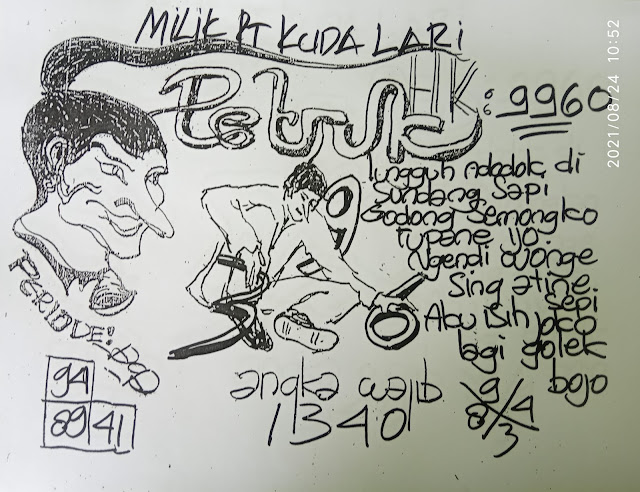 MILIK PT KUDA LARI
Petruk HK : 9960
Lungguh ndodok di
Sundang Sapi
Godong Semongko
rupane ijo.
Ngendi wonge
Sing atine
sepi
Aku isih joko
lagi golek
bojo
PERIODE:
94
89 41
angka wajib
1340
9
8 4
3
2021/08/24 10:52